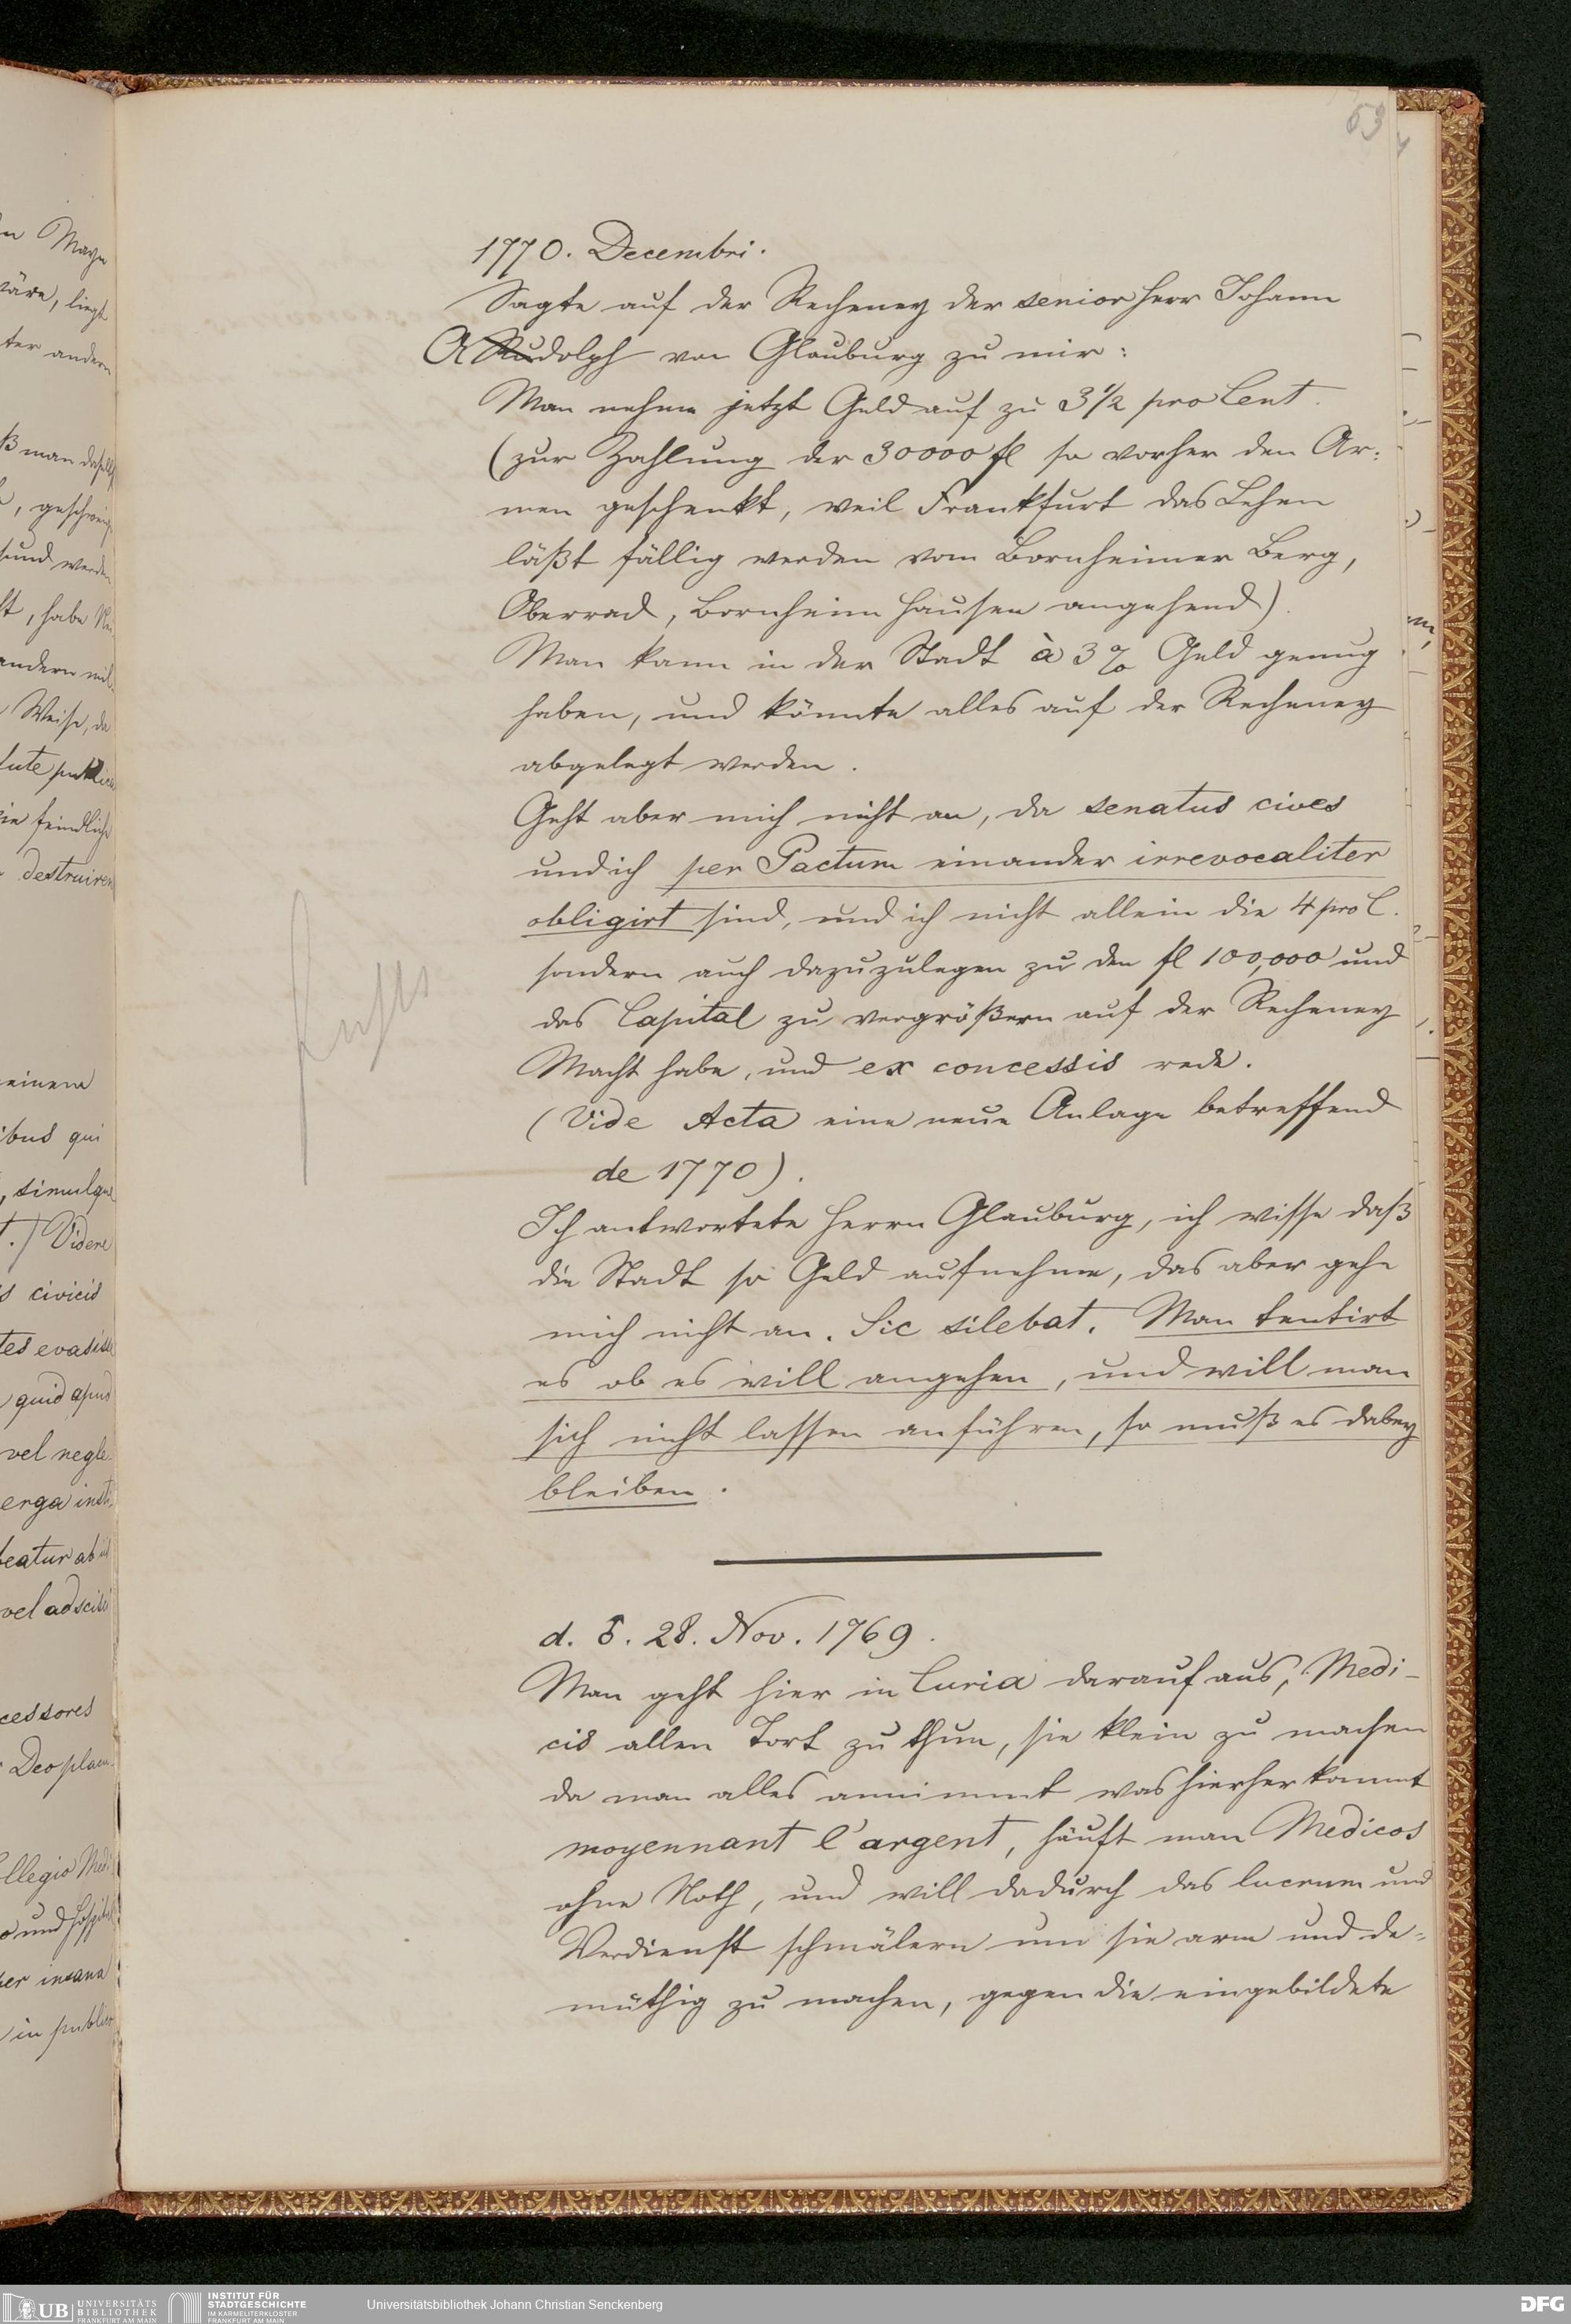 63
1770. Decembri.
Sagte auf der Recheney der senior Herr Johann
A Rudolph von Glauburg zu mir:
Man nehme jetzt Geld auf zu 3 1/2 pro Cent.
(zur Zahlung der 30000 fl so vorher den Ar:
men geschenkt, weil Frankfurt das Lehen
läßt fällig werden vom Bornheimer Berg,
Oberrad, Bornheim Hausen angehend).
Man kann in der Stadt à 3% Geld genug
haben, und könnte alles auf der Recheney
abgelegt werden.
Geht aber mich nicht an, da senatus cives
und ich per Pactum einander irrevocaliter
obligirt sind, und ich nicht allein die 4 pro C.
sondern auch dazuzulegen zu den fl 100,000 und
das Capital zu vergrößern auf der Recheney
Macht habe, und ex concessis rede.
(Vide Acta eine neue Anlage betreffend
de 1770).
Ich antwortete Herrn Glauburg, ich wisse daß
die Stadt so Geld aufnehme, das aber gehe
mich nicht an. Sic silebat. Man tentirt
es ob es will angehen, und will man
sich nicht lassen anführen, so muß es dabey
bleiben.
d. 28. Nov. 1769.
Man geht hier in Curia darauf aus, Medi-
cis allen Tort zu thun, sie klein zu machen
da man alles annimmt was hierher kommt
moyennant l'argent, häuft man Medicos
ohne Noth, und will dadurch das lucrum und
Verdienst schmälern um sie arm und de-
müthig zu machen, gegen die eingebildete
UB UNIVERSITÄTS
BIBLIOTHEK
FRANKFURT AM MAIN
INSTITUT FÜR
STADTGESCHICHTE
IM KARMELITERKLOSTER
FRANKFURT AM MAIN
Universitätsbibliothek Johann Christian Senckenberg
DFG